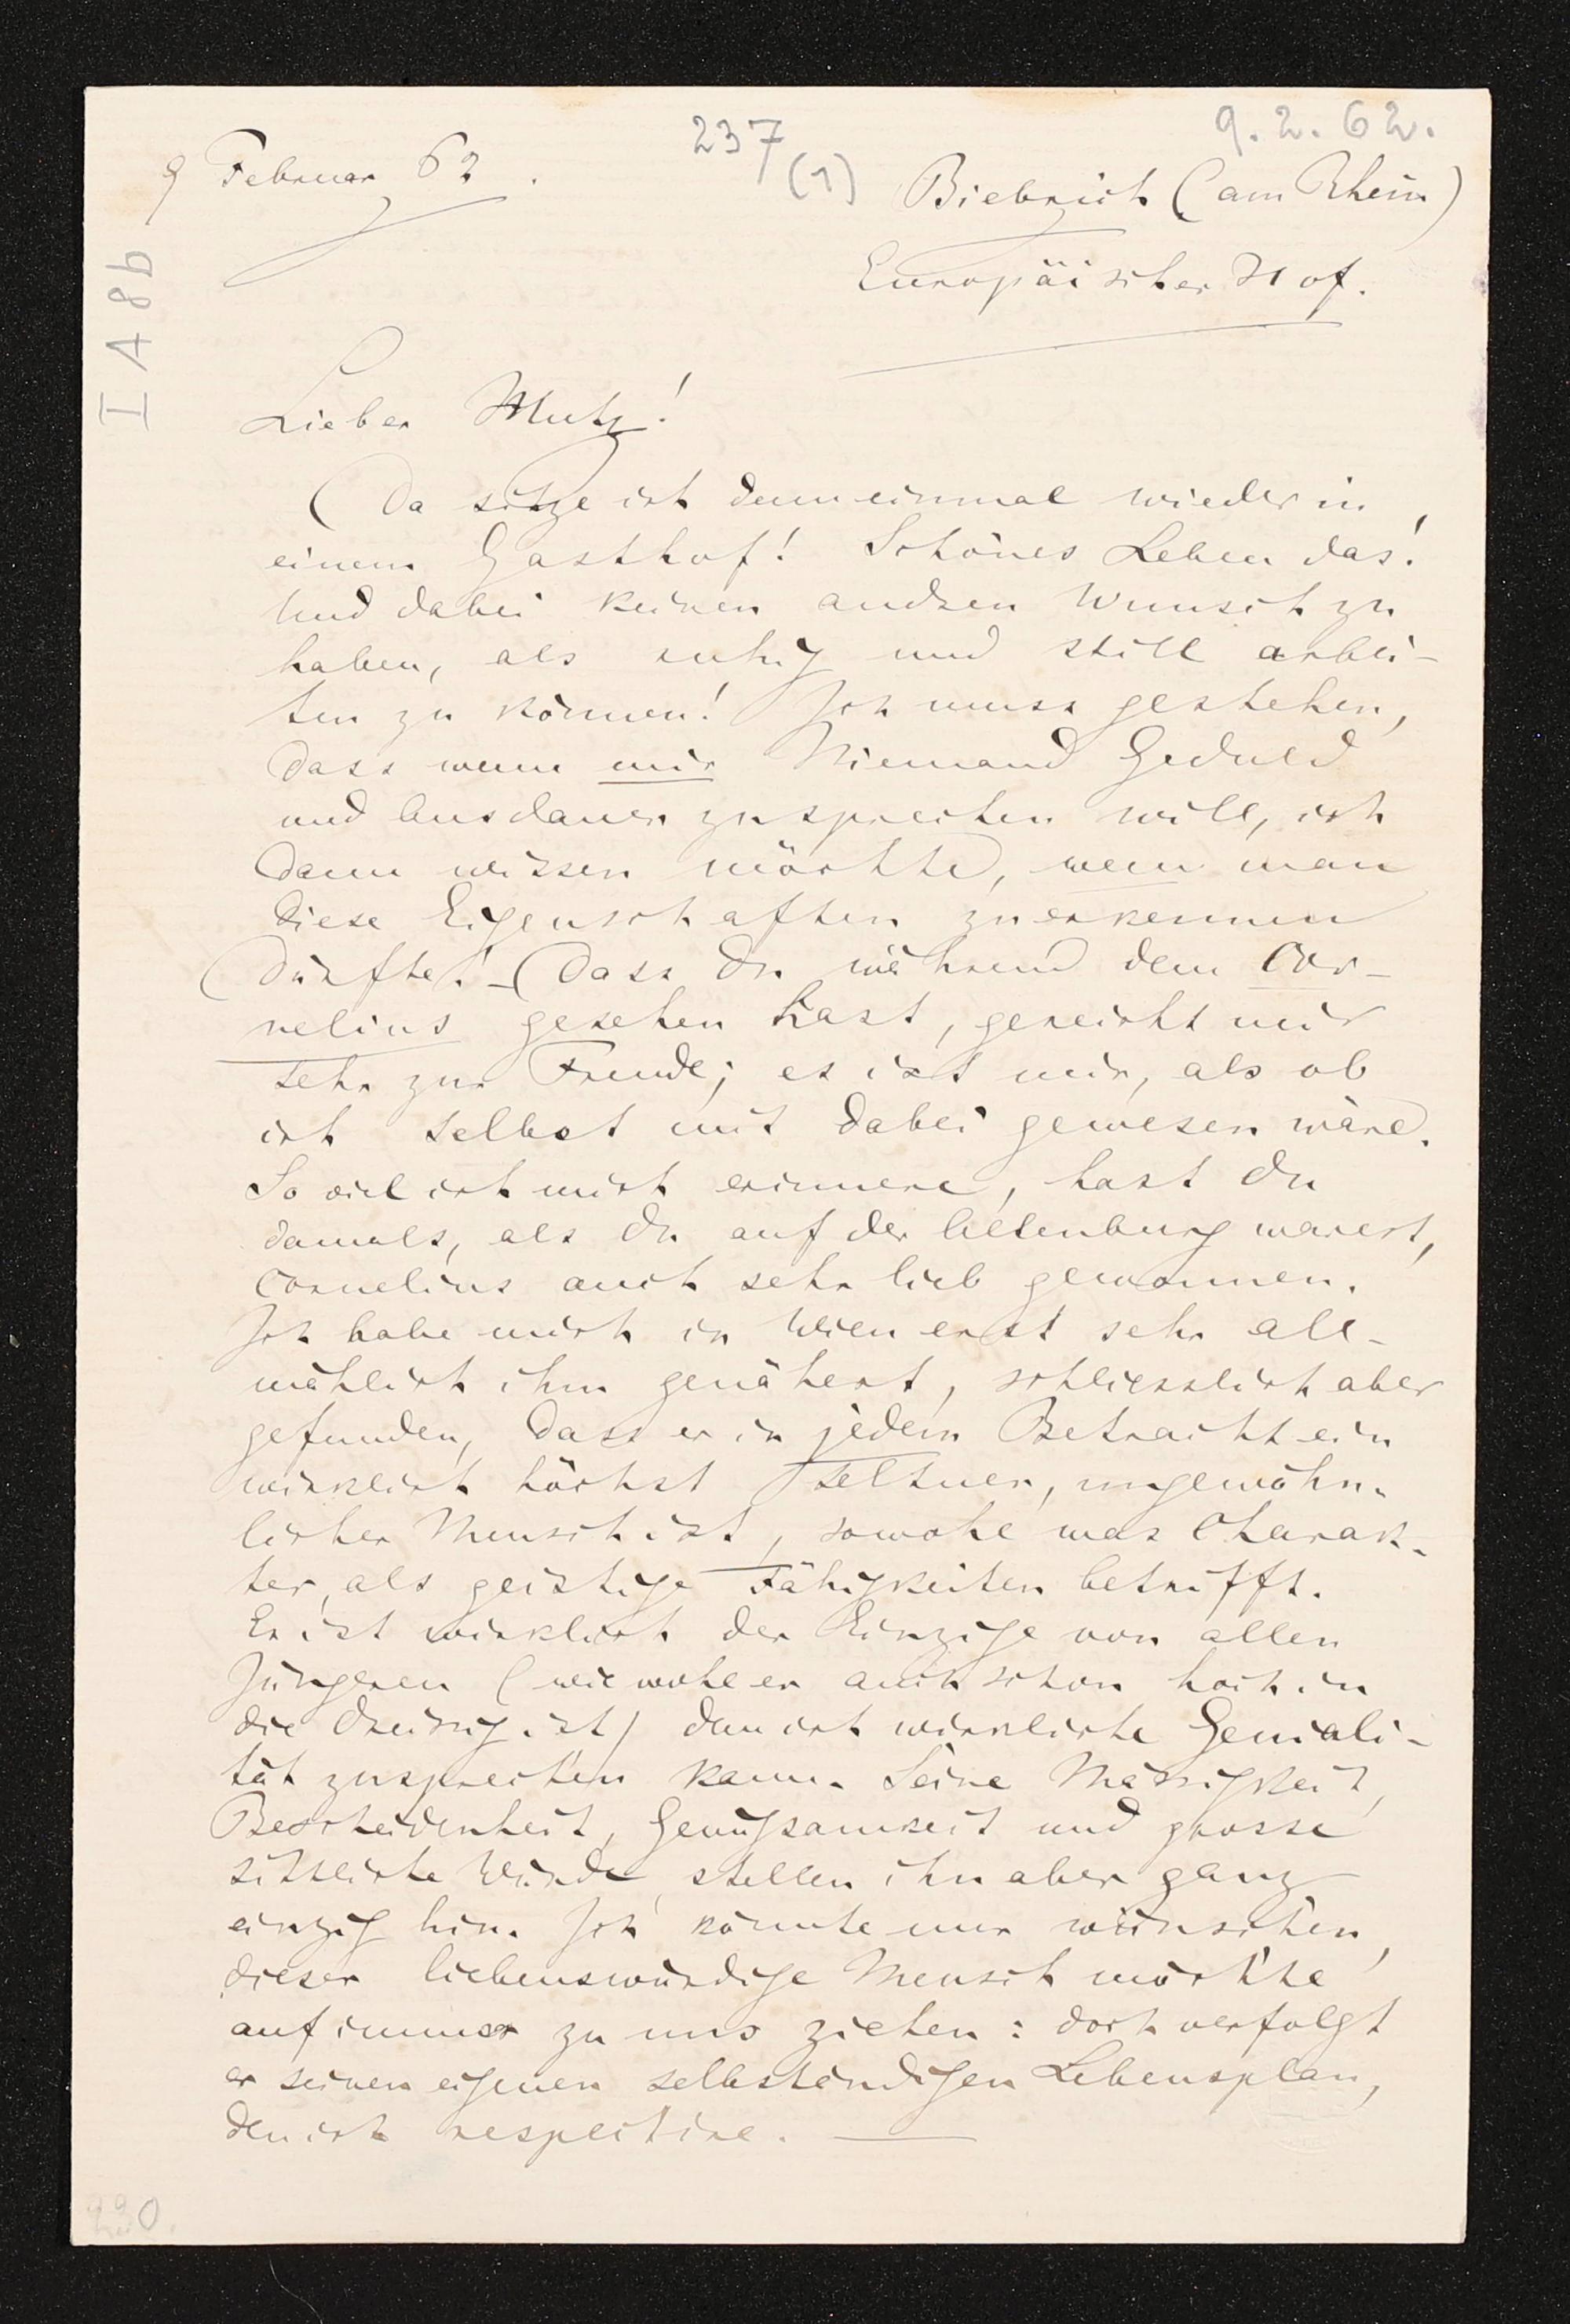 237
9. 2. 62.
9 Februar 62.
(1)
Biebrich (am Rhein)
Europäischer Hof.
I A 8 b
Lieber Mutz!
Da sitze ich denn einmal wieder in
einem Gasthof! Schönes Leben das!
Und dabei keinen andren Wunsch zu
haben, als ruhig und still arbei-
ten zu können! Ich muss gestehen,
dass wenn mir Niemand Geduld
und Ausdauer zusprechen will, ich
dann wissen möchte, wem man
diese Eigenschaften zuerkennen
dürfte! – Dass Du während dem Cor-
nelius gesehen hast, gereicht mir
sehr zur Freude; es ist mir, als ob
ich selbst mit dabei gewesen wäre.
So viel ich mich erinnere, hast Du
damals, als Du auf der Altenburg warest,
Cornelius auch sehr lieb gewonnen.
Ich habe mich in Wien erst sehr all-
mählich ihm genähert, schliesslich aber
gefunden, dass er in jedem Betracht ein
wirklich höchst seltner, ungewöhn-
licher Mensch ist, sowohl was Charak-
ter, als geistige Fähigkeiten betrifft.
Er ist wirklich der Einzige von allen
Jüngeren (wiewohl er auch schon hoch in
die Dreissig ist) dem ich wirkliche Geniali-
tät zusprechen kann. Seine Mässigkeit,
Bescheidenheit, Genügsamkeit und grosse
sittliche Würde, stellen ihn aber ganz
einzig hin. Ich könnte nur wünschen,
dieser liebenswürdige Mensch möchte
auf immer zu uns ziehen: doch verfolgt
er seinen eigenen selbständigen Lebensplan,
den ich respectire. —